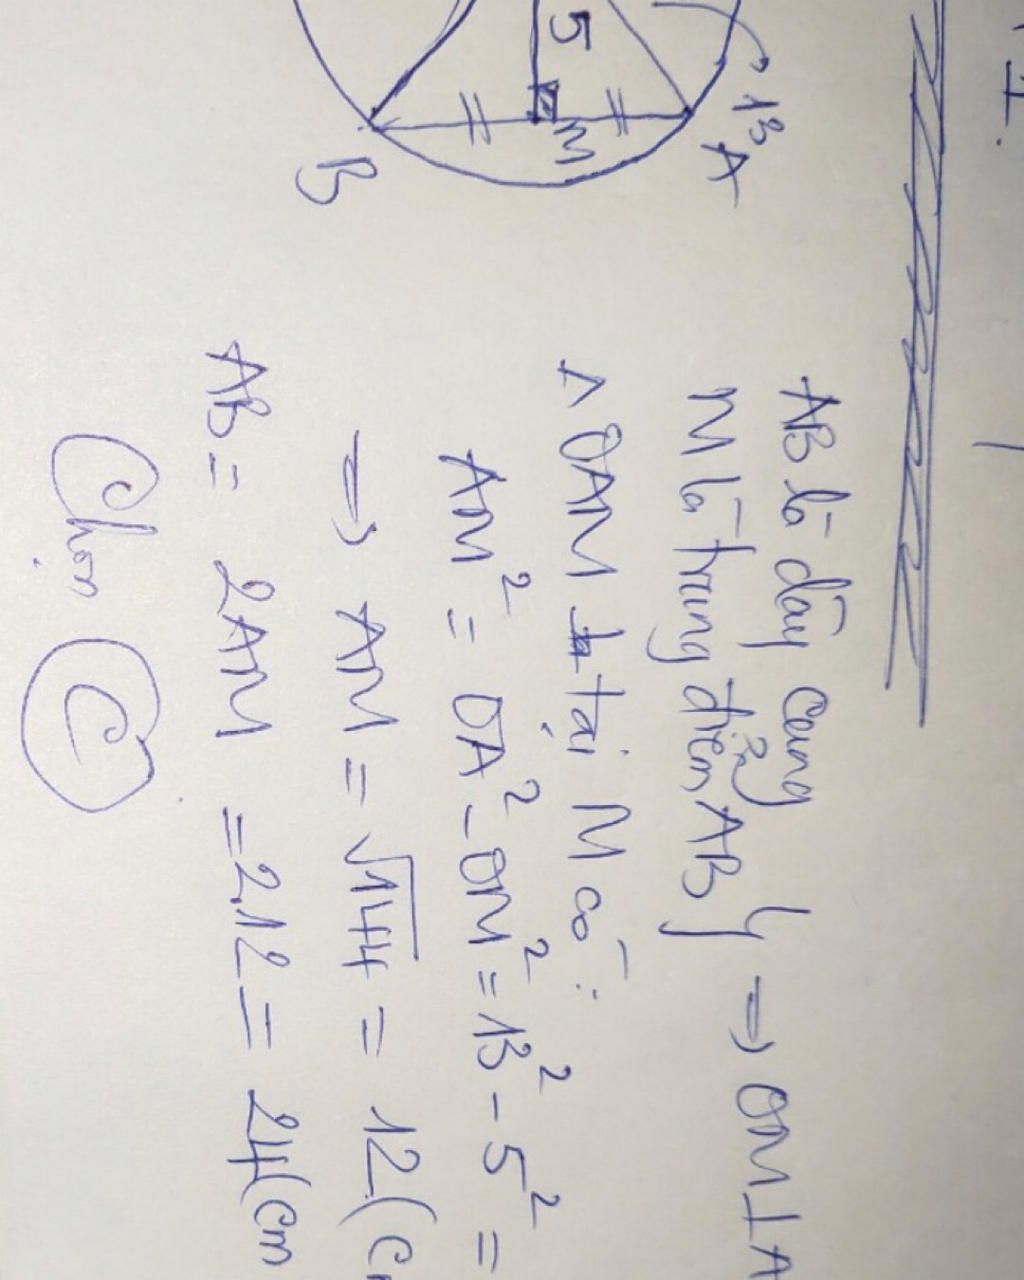 I.
5
13
A
M
B
AB là dây cung
M là trung điểm AB } => OM ⊥ A
Δ OAM tại M có:
AM² = OA² - OM² = 13² - 5² =
=> AM = √144 = 12 (c
AB = 2AM = 2.12 = 24 (cm
Chọn C